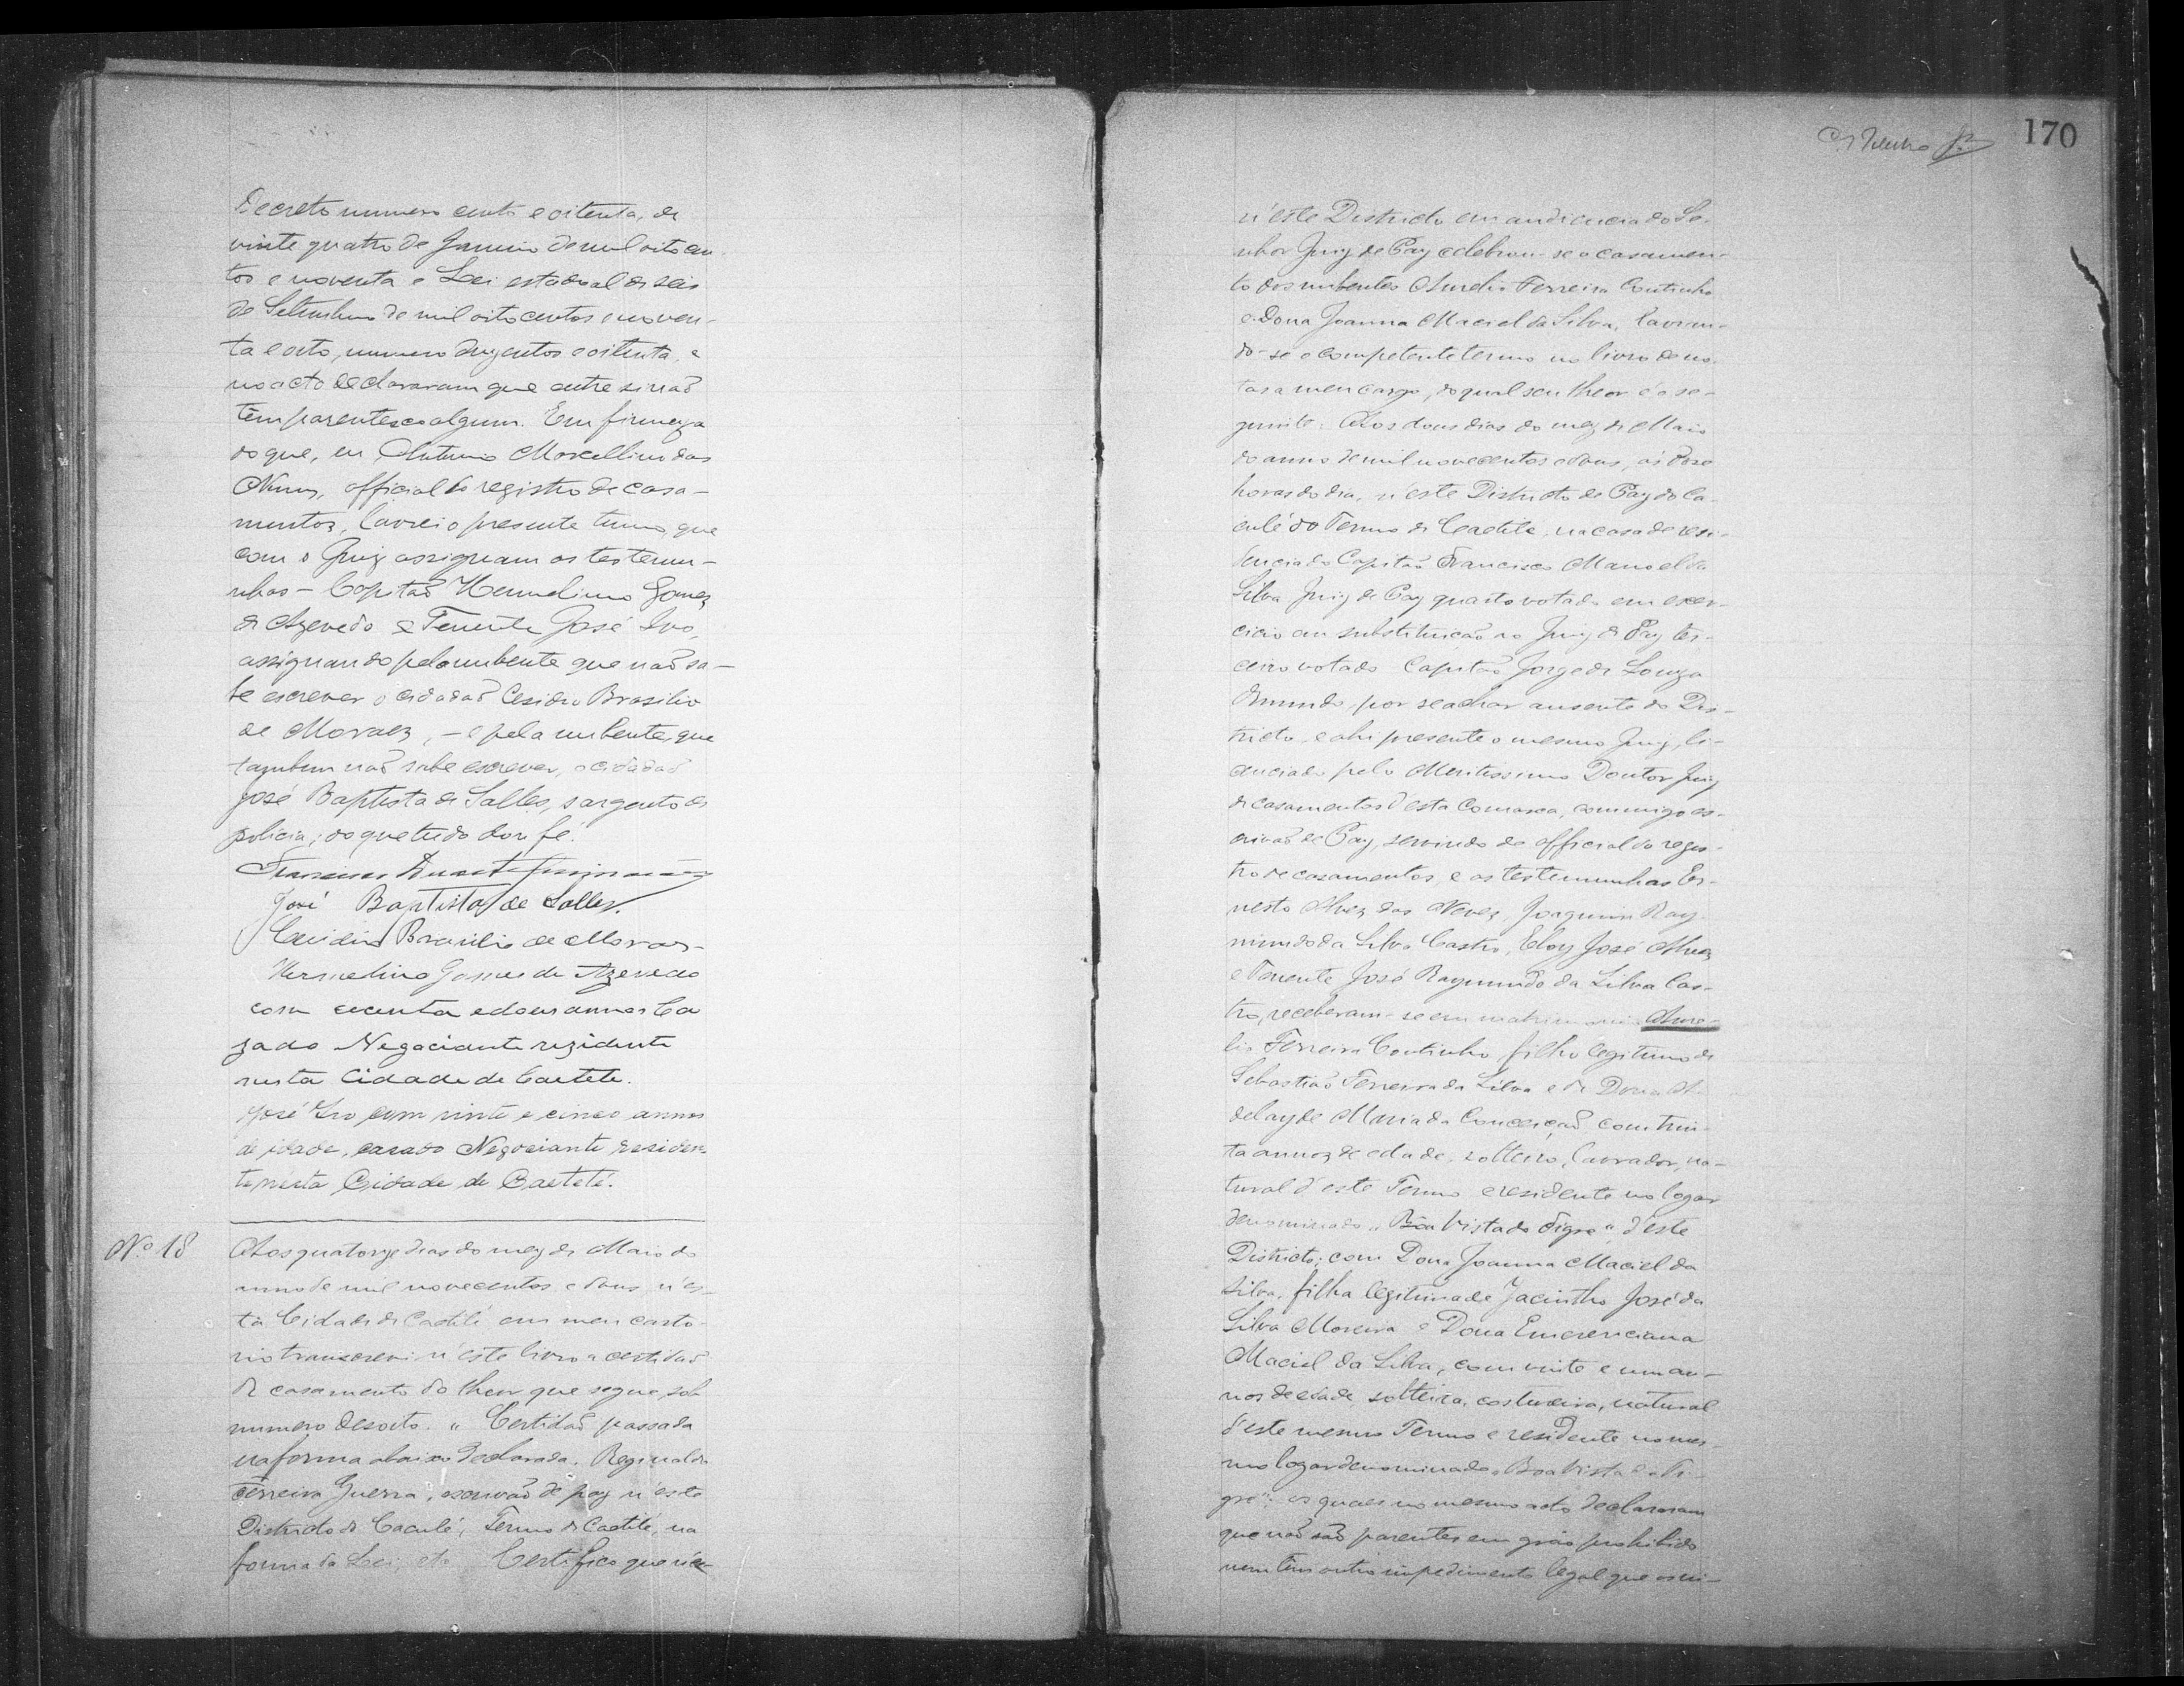 Decreto numero cento e oitenta, de
vinte quatro de Janeiro de mil oitocen-
tos e noventa e Lei estadoal de seis
de Setembro de mil oitocentos e noven-
ta e oito, numero duzentos e oitenta, e
no acto declararam que entre si naõ
têm parentesco algum. Em firmeza
do que, eu Antonio Marcellino das
Neves, official do registro de casa-
mentos, lavrei o presente termo, que
com o Juiz assignam as testemu-
nhas – Capitaõ Hermelino Gomes
de Azevedo e Tenente José Ivo,
assignando pelo nubente que naõ sa-
be escrever o cidadaõ Cesidio Brasilio
de Moraes, – e pela nubente, que
tambem naõ sabe escrever, o cidadaõ
José Baptista de Salles, sargento de
policia; do que tudo dou fé.
José Baptista de Salles.
Cesidio Brasilio de Moraes
Hermelino Gomes de Azevedo
com secenta e dous annos Ca
zado Negociante rezidente
nesta Cidade de Caetete.
José Ivo com vinte e cinco annos
de idade, casado Negociante residen
te nesta Cidade de Caeteté.
Nº 18
Aos quatorze dias do mez de Maio do
anno de mil novecentos e dous n'es-
ta Cidade de Caetité em meu carto-
rio transcrevi n'este livro a certidaõ
de casamento do theor que segue, sob
numero desoito. " Certidaõ passada
na forma abaixo declarada. Reginaldo
Ferreira Guerra, escrivaõ de paz n'este
Districto de Caculé, Termo de Caetité, na
forma da Lei, etc. Certifico que
170
n'este Districto em audiencia do Se-
nhor Juiz de Paz celebrou-se o casamen-
to dos nubentes Aurelio Ferreira Coutinho
e Dona Joanna Maciel da Silva, lavran-
do-se o competente termo no livro de no-
tas a meu cargo, do qual seu theor é o se-
guinte: Aos dous dias do mez de Maio
do anno de mil novecentos e dous, ás doze
horas do dia, n'este Districto de Paz do Ca-
culé do Termo de Caetité, na casa de resi-
dencia do Capitaõ Francisco Manoel da
Silva Juiz de Paz quarto votado em exer-
cicio em substituicaõ ao Juiz de Paz ter-
ceiro votado Capitaõ Jorge de Souza
por se achar ausente do Dis-
tricto, e ahi presente o mesmo Juiz, li-
cenciado pelo Meritissimo Doutor Juiz
de casamentos d'esta Comarca, commigo es-
crivaõ de Paz, servindo de official do regis-
tro de casamentos, e as testemunhas Er-
nesto Alves das Neves, Joaquim Ray-
mundo da Silva Castro, Eloy José Alves
e Tenente José Raymundo da Silva Cas-
tro, receberam-se em matrimonio Aure-
lio Ferreira Coutinho, filho legitimo de
Sebastiaõ Ferreira da Silva e de Dona A-
delayde Maria da Conceiçaõ, com trin-
ta annos de edade, solteiro, lavrador, na-
tural d'este Termo e residente no logar
denominado "Bôa Vista do Tigre" d'este
Districto; com Dona Joanna Maciel da
Silva, filha legitima de Jacintho José da
Silva Moreira e Dona Emerenciana
Maciel da Silva, com vinte e um an-
nos de edade, solteira, costureira, natural
d'este mesmo Termo e residente no mes-
mo logar denominado "Boa Vista do Ti-
gre"; os quaes no mesmo acto declararam
que naõ saõ parentes em gráo prohibido
nem têm outro impedimento legal que os